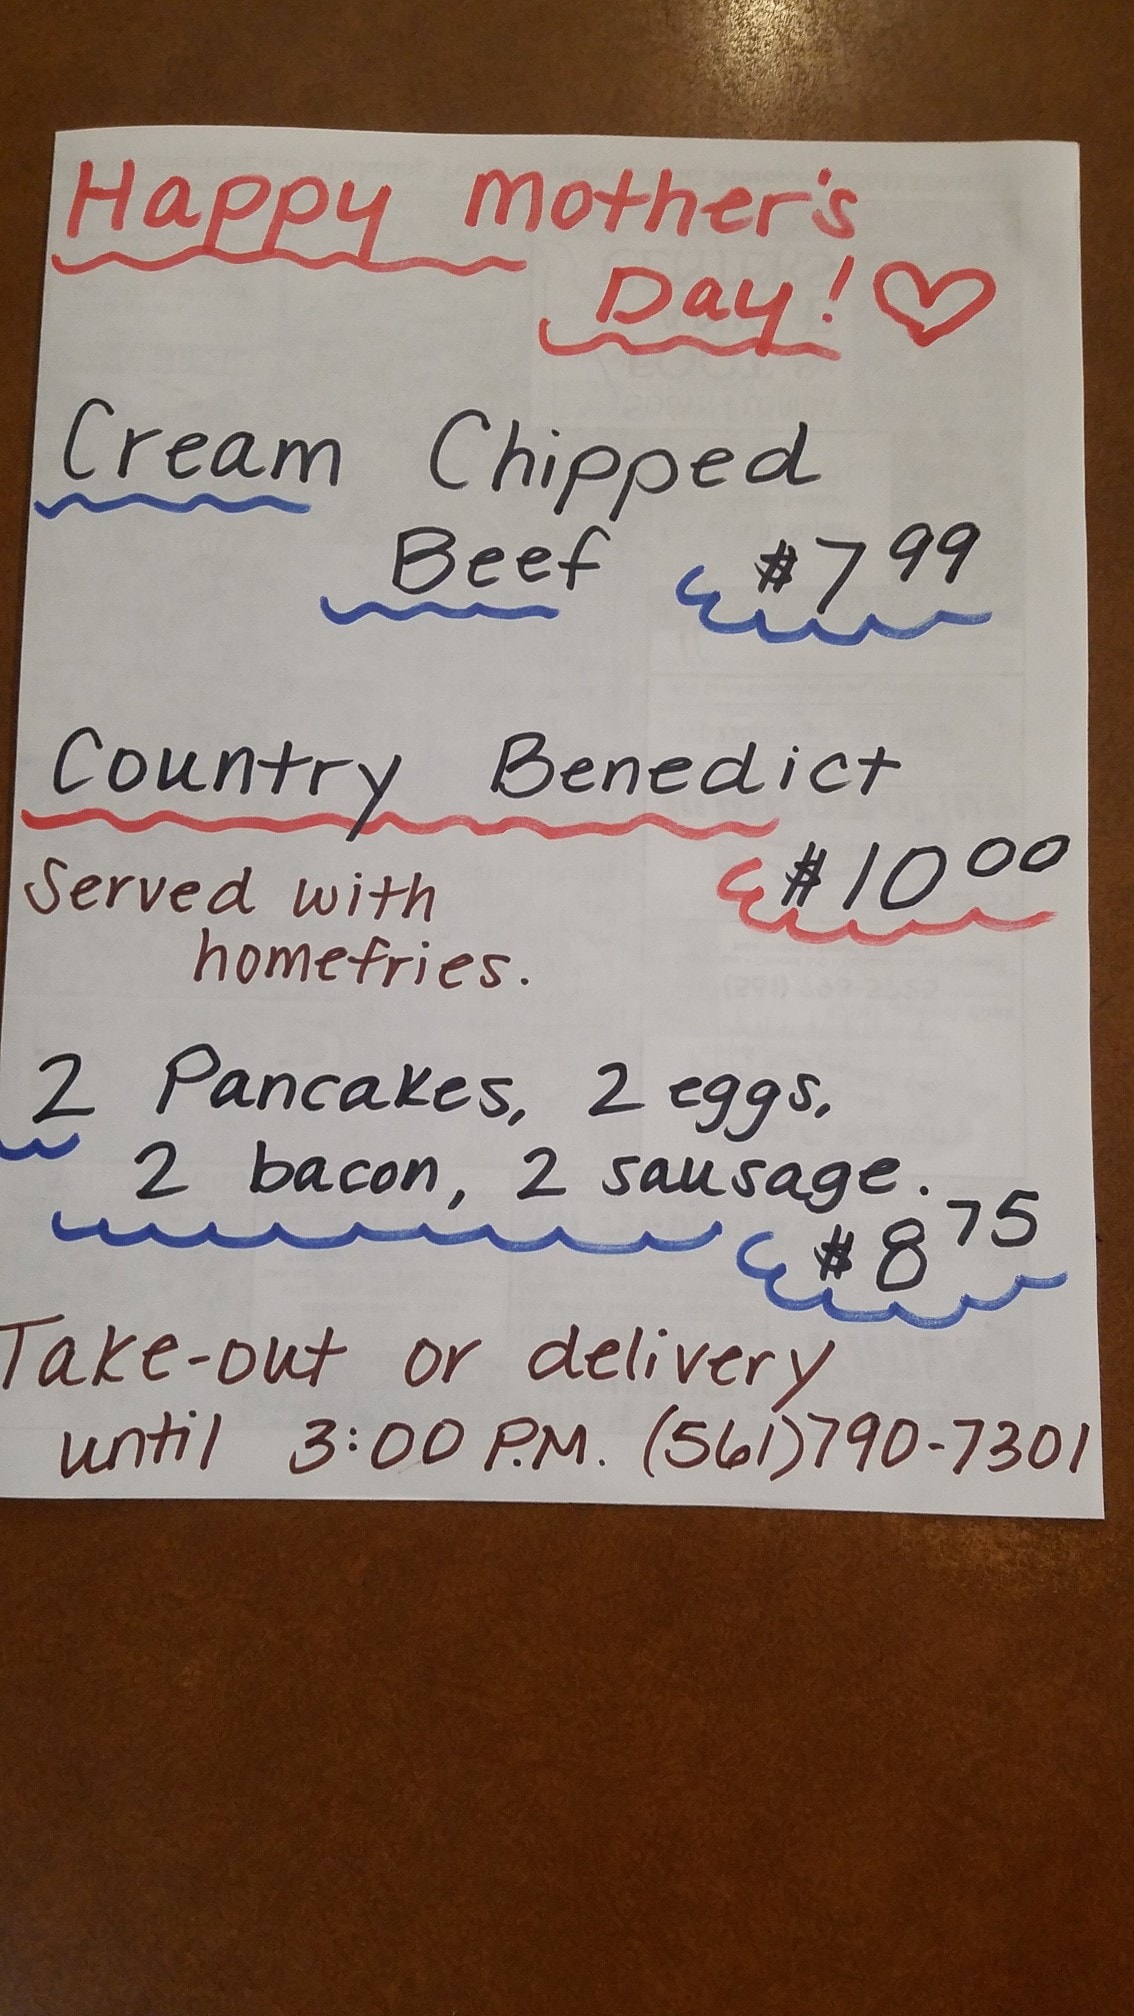 Happy Mother's
Day!
Cream Chipped
Beef $7 99
Country Benedict
$10 00
Served with
homefries.
2 Pancakes, 2 eggs,
2 bacon, 2 sausage.
$8 75
Take-out or delivery
until 3:00 P.M. (561)790-7301